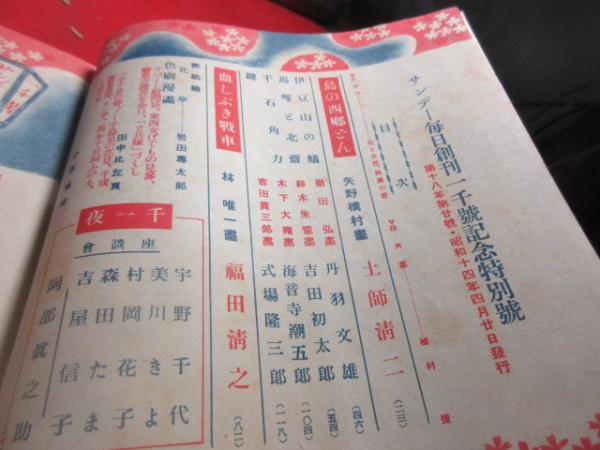 サンデー毎日創刊一千號記念特別號
第十八年第廿號・昭和十四年四月廿日發行
目次
島の西郷どん
矢野橋村畫
土師清二
(二三)
丹羽文雄
(四六)
伊豆山の蟻
勝田弘畫
吉田初太郎
(五四)
馬琴と北齋
鈴木朱雀畫
海音寺潮五郎
(一〇四)
千石角力
木下大雍畫
式場隆三郎
(一一八)
鍵
吉田貫三郎畫
血しぶき戰車
林唯一畫
福田清之
(八二)
表紙繪
花傘
岩田專太郎
色刷漫畫
田中比左良
千一夜
座談會
宇野千代
美川きよ
村岡花子
森田たま
吉屋信子
阿部眞之助